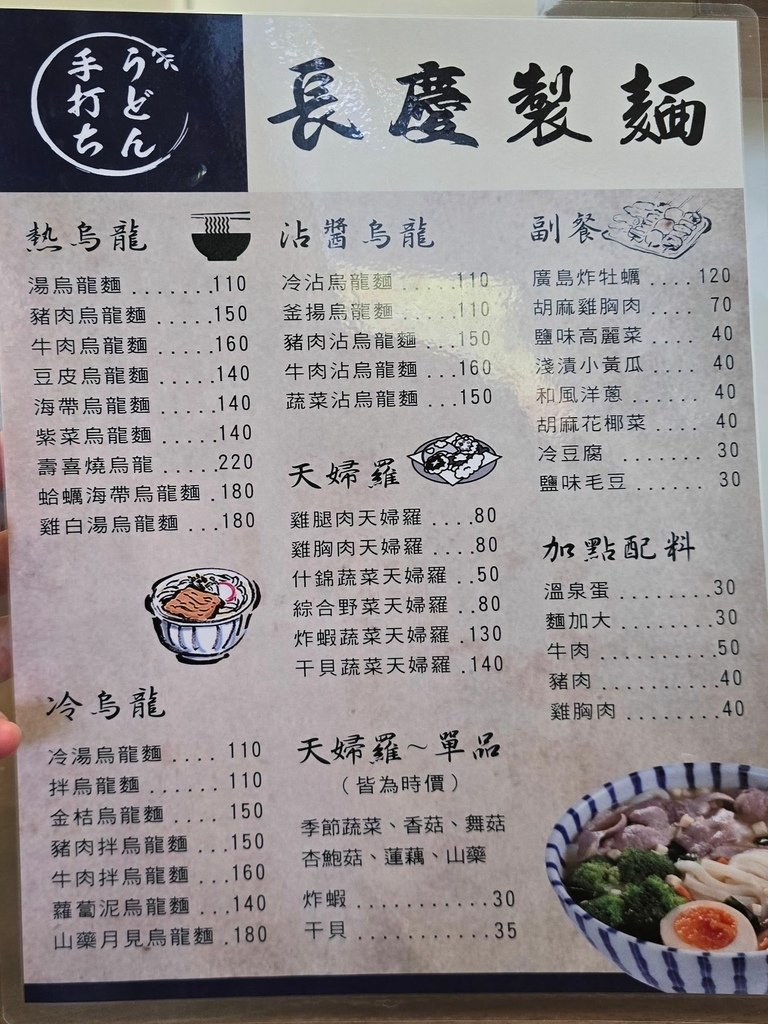 うどん
手打ち
長慶製麵
熱烏龍
湯烏龍麵 .......110
豬肉烏龍麵 .....150
牛肉烏龍麵 .....160
豆皮烏龍麵 .....140
海帶烏龍麵 .....140
紫菜烏龍麵 .....140
壽喜燒烏龍 .....220
蛤蠣海帶烏龍麵 .180
雞白湯烏龍麵 ...180
冷烏龍
冷湯烏龍麵 .... 110
拌烏龍麵 ...... 110
金桔烏龍麵 .... 150
豬肉拌烏龍麵 ...150
牛肉拌烏龍麵 ...160
蘿蔔泥烏龍麵 ...140
山藥月見烏龍麵 .180
沾醬烏龍
冷沾烏龍麵 .....110
釜揚烏龍麵 .....110
豬肉沾烏龍麵 ...150
牛肉沾烏龍麵 ...160
蔬菜沾烏龍麵 ...150
天婦羅
雞腿肉天婦羅 ....80
雞胸肉天婦羅 ....80
什錦蔬菜天婦羅 ..50
綜合野菜天婦羅 ..80
炸蝦蔬菜天婦羅 .130
干貝蔬菜天婦羅 .140
天婦羅~單品
（皆為時價）
季節蔬菜、香菇、舞菇
杏鮑菇、蓮藕、山藥
炸蝦 ...........30
干貝 ...........35
副餐
廣島炸牡蠣 .... 120
胡麻雞胸肉 .... 70
鹽味高麗菜 .... 40
淺漬小黃瓜 .... 40
和風洋蔥 ...... 40
胡麻花椰菜 .... 40
冷豆腐 ....... 30
鹽味毛豆 ...... 30
加點配料
溫泉蛋 .........30
麵加大 .........30
牛肉 ...........50
豬肉 ...........40
雞胸肉 .........40